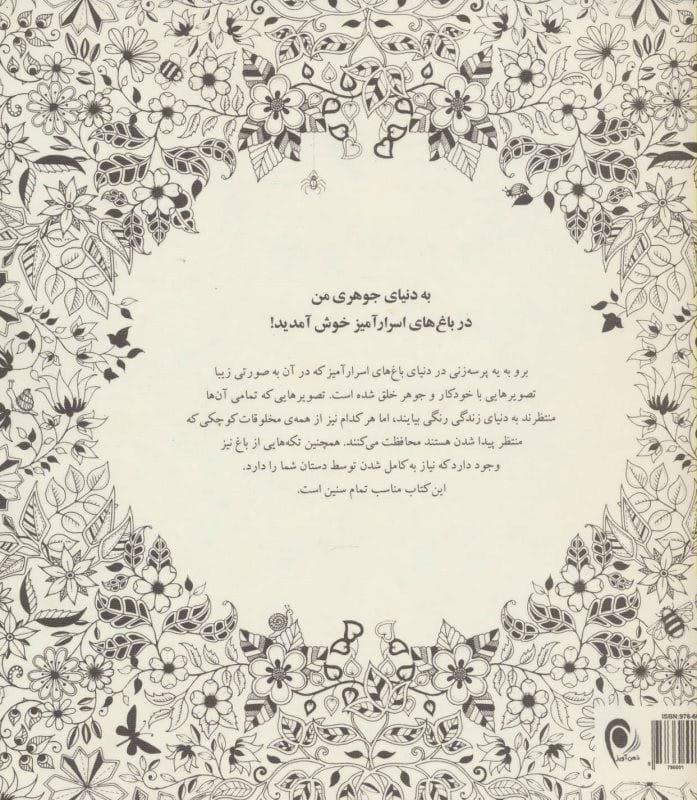 به دنیای جوهری من
در باغ‌های اسرارآمیز خوش آمدید!
برو به یه پرسه‌زنی در دنیای باغ‌های اسرارآمیز که در آن به صورتی زیبا
تصویرهایی با خودکار و جوهر خلق شده است. تصویرهایی که تمامی آن‌ها
منتظرند به دنیای زندگی رنگی بیایند، اما هر کدام نیز از همه‌ی مخلوقات کوچکی که
منتظر پیدا شدن هستند محافظت می‌کنند. همچنین تکه‌هایی از باغ نیز
وجود دارد که نیاز به کامل شدن توسط دستان شما را دارد.
این کتاب مناسب تمام سنین است.
ISBN:978-6
ذهن‌آویز